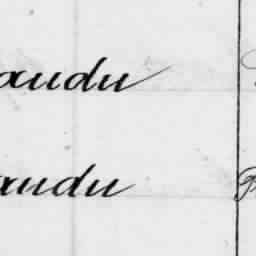 audu
audu